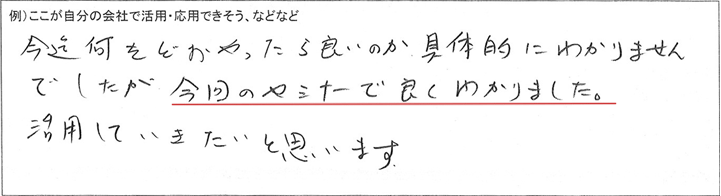 例）ここが自分の会社で活用・応用できそう、などなど
今迄何をどおやったら良いのか具体的にわかりません
でしたが今回のセミナーで良くわかりました。
活用していきたいと思います